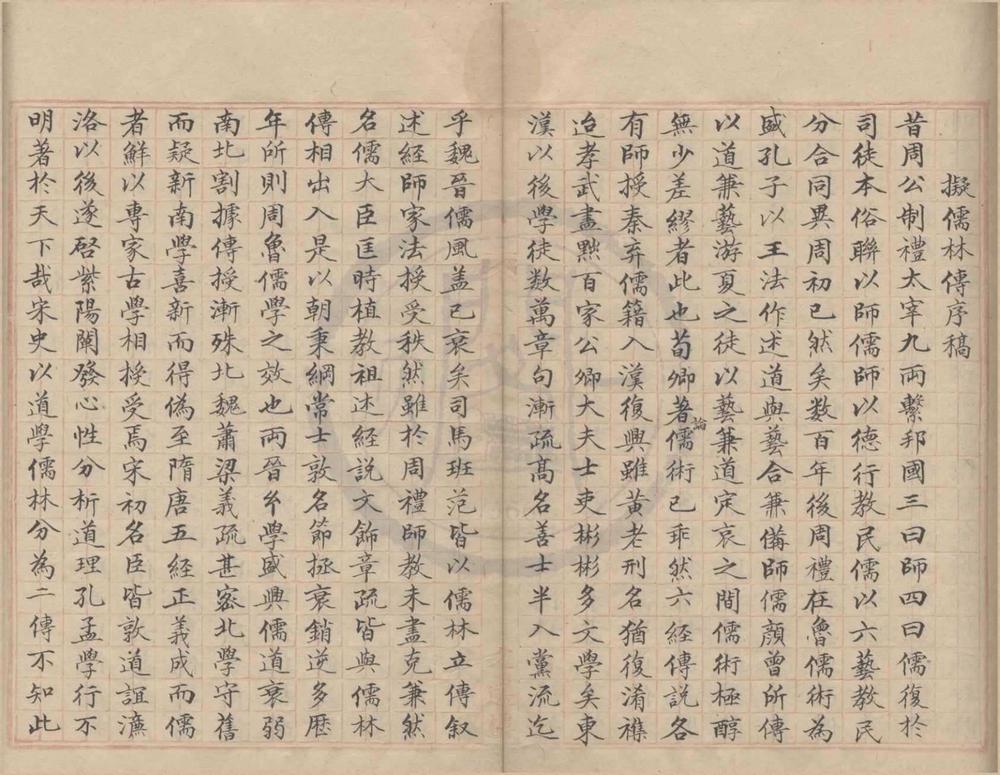 擬儒林傳序稿
昔周公制禮太宰九兩繫邦國三曰師四曰儒復於
司徒本俗聯以師儒師以德行教民儒以六藝教民
分合同異周初已然矣数百年後周禮在魯儒術為
盛孔子以王法作述道與藝合兼備師儒顏曾所傳
以道兼藝游夏之徒以藝兼道定哀之間儒術極醇
無少差繆者此也荀卿著論儒術已乖然六經傳說各
有師授秦弃儒籍入漢復興雖黃老刑名猶復淆襍
迨孝武盡黙百家公卿大夫士吏彬彬多文學矣東
漢以後學徒数萬章句漸疏髙名善士半入黨流迄
乎魏晉儒風盖已衰矣司馬班范皆以儒林立傳叙
述經師家法授受秩然雖於周禮師教未盡克兼然
名儒大臣匡時植教祖述經說文飾章疏皆與儒林
傳相出入是以朝秉綱常士敦名節拯衰銷逆多歴
年所則周魯儒學之效也兩晉𤣥學盛興儒道衰弱
南北割據傳授漸殊北魏蕭梁義疏甚密北學守舊
而疑新南學喜新而得偽至隋唐五經正義成而儒
者鮮以專家古學相授受焉宋初名臣皆敦道誼濂
洛以後遂啓紫陽闡發心性分析道理孔孟學行不
明著於天下哉宋史以道學儒林分為二傳不知此